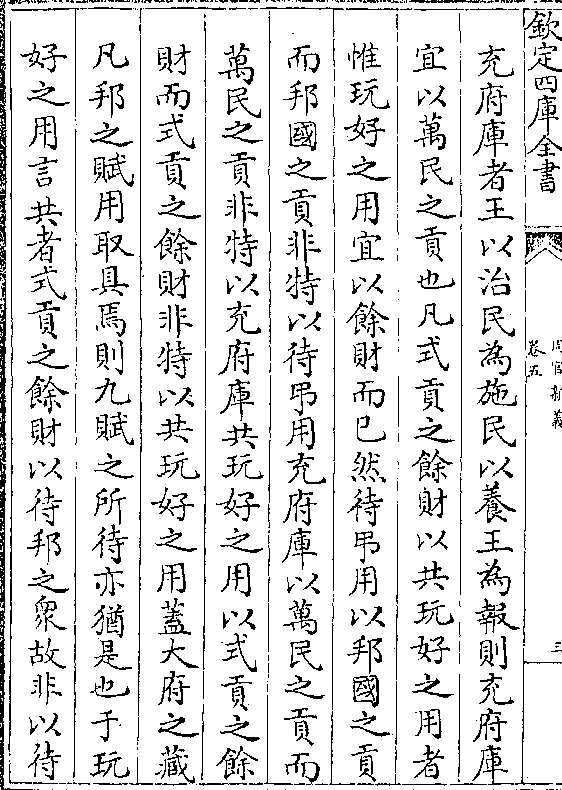 欽定四庫全書
周官新義
卷五
三
充府庫者王以治民為施民以養王為報則充府庫
宜以萬民之貢也凡式貢之餘財以共玩好之用者
惟玩好之用宜以餘財而已然待弔用以邦國之貢
而邦國之貢非特以待弔用充府庫以萬民之貢而
萬民之貢非特以充府庫共玩好之用以式貢之餘
財而式貢之餘財非特以共玩好之用蓋大府之藏
凡邦之賦用取具焉則九賦之所待亦猶是也于玩
好之用言共者式貢之餘財以待邦之衆故非以待